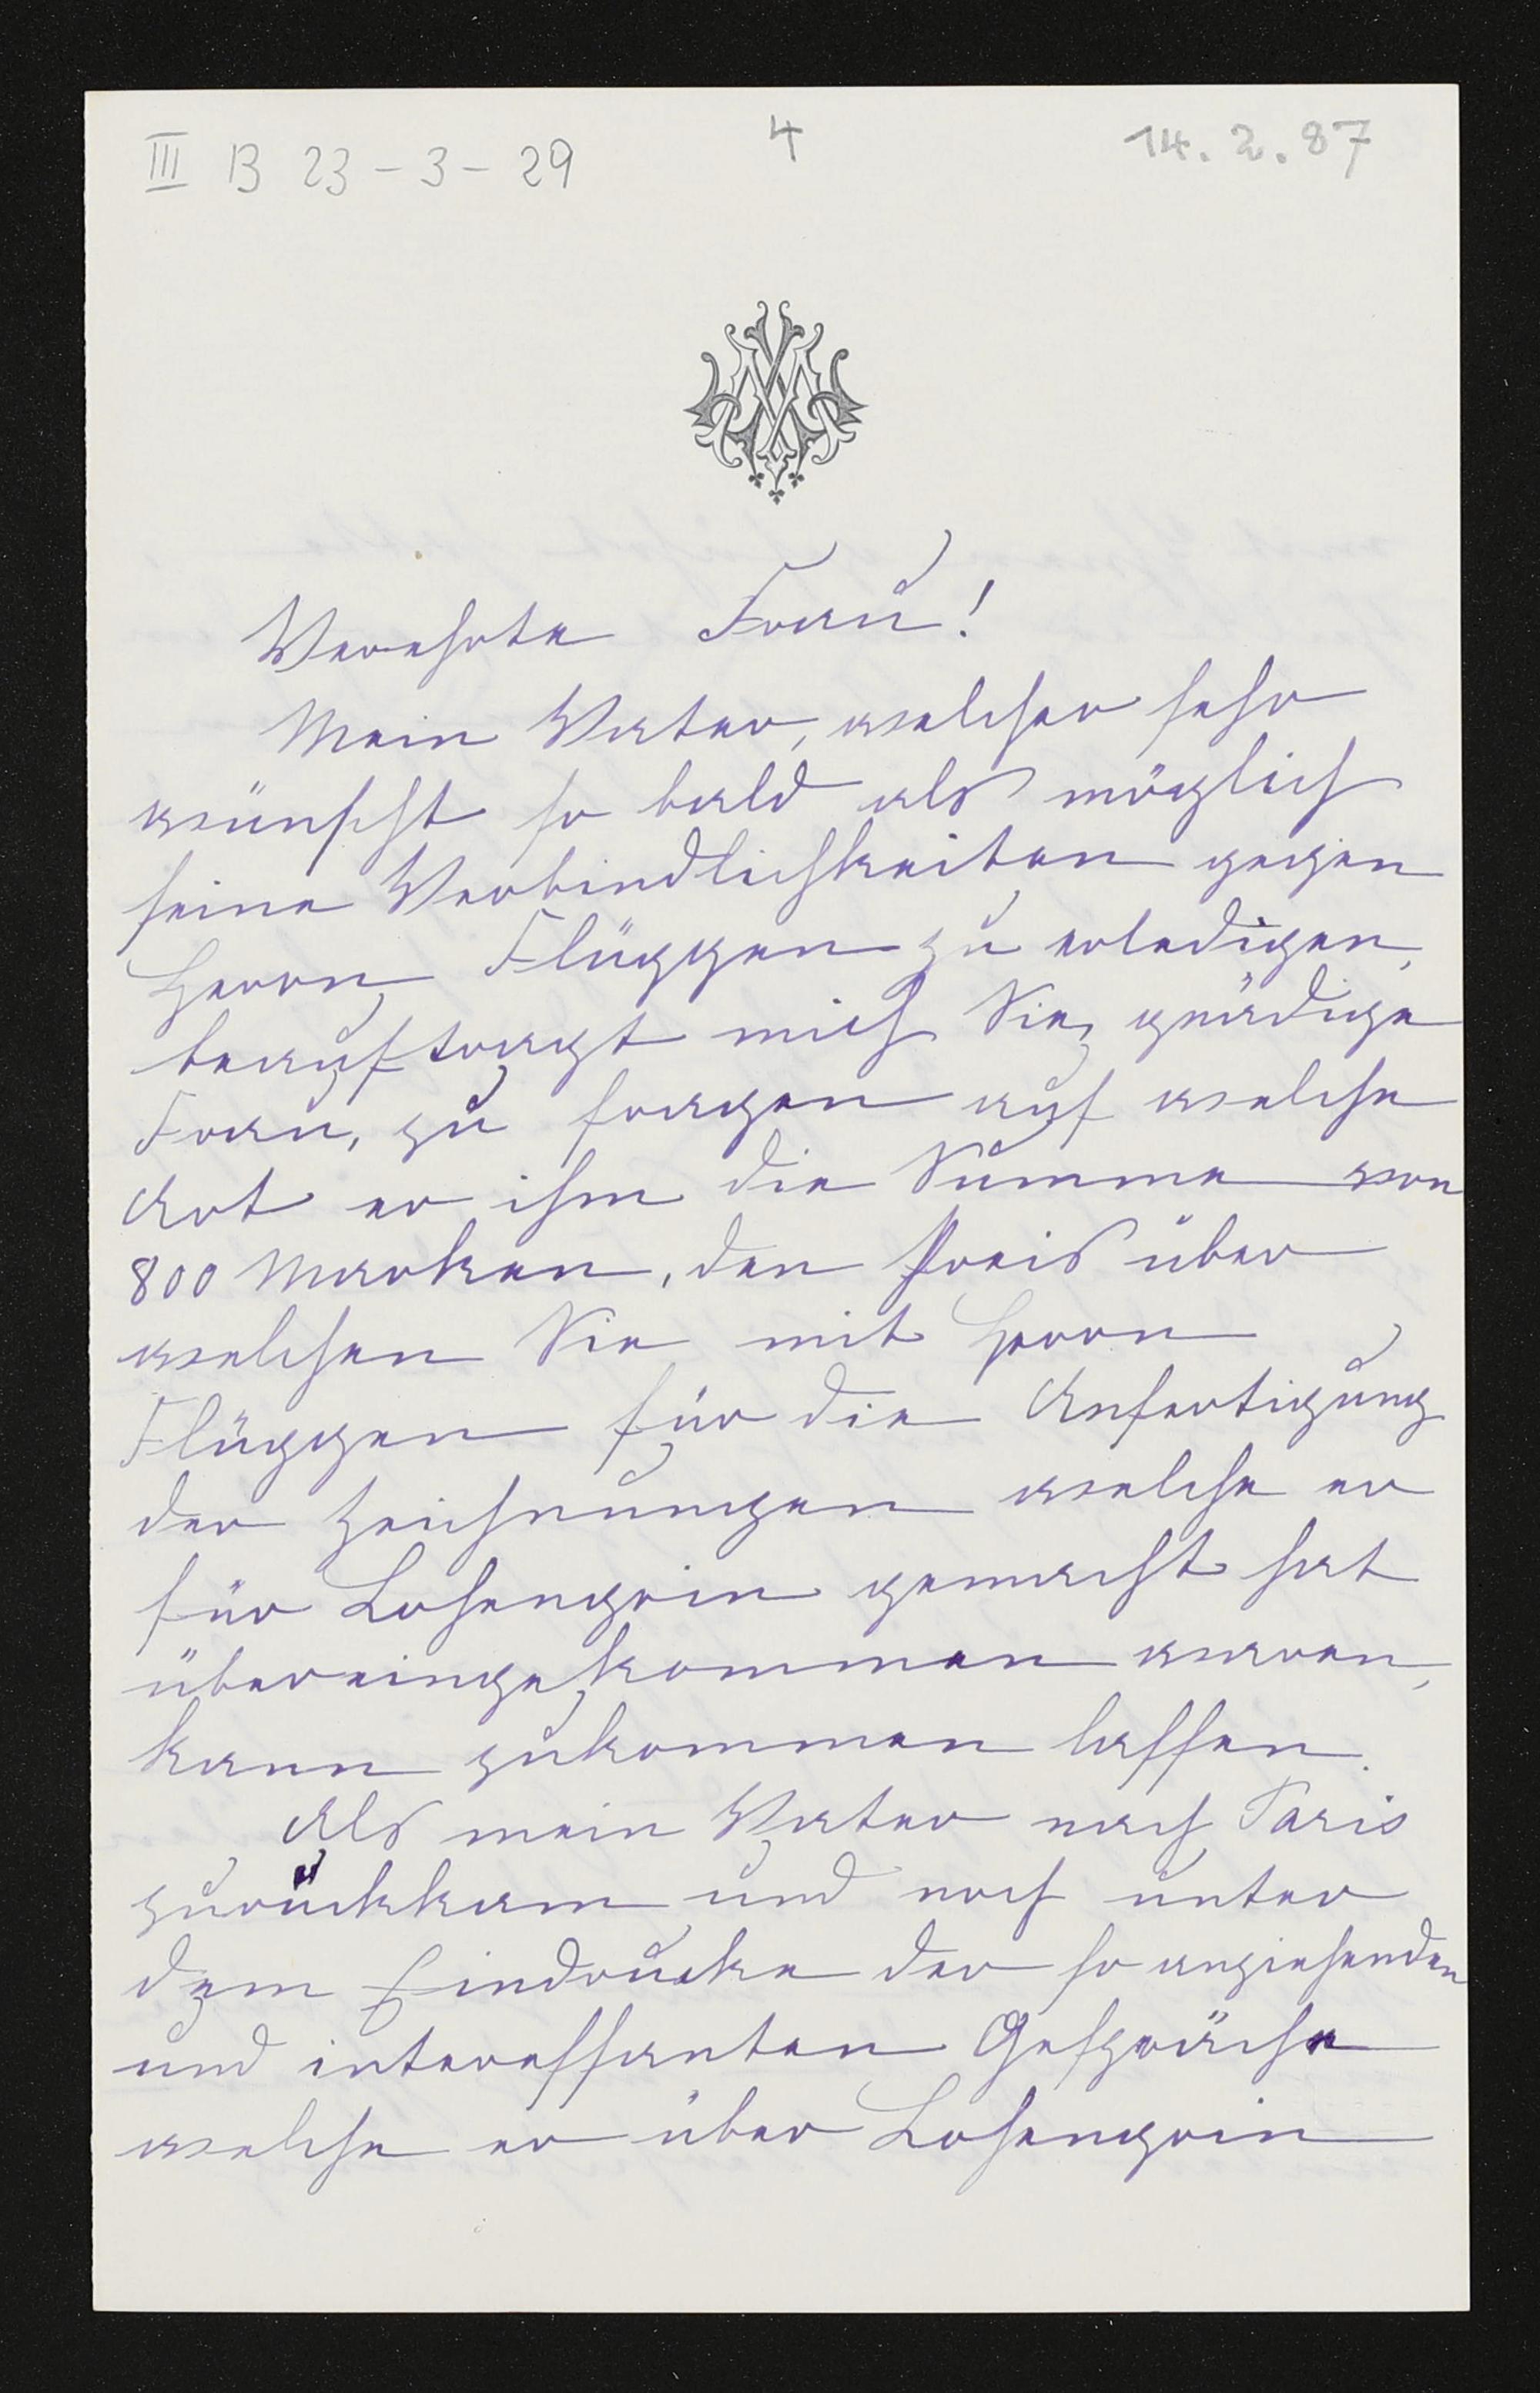 III B 23-3-29
4
14.2.87
Verehrte Frau!
Mein Vater, welcher sehr
wünscht so bald als möglich
seine Verbindlichkeiten gegen
Herrn Flüggen zu erledigen,
beauftragt mich Sie, gnädige
Frau, zu fragen auf welche
Art er ihm die Summe von
800 Marken, den Preis über
welchen Sie mit Herrn
Flüggen für die Anfertigung
der Zeichnungen welche er
für Lohengrin gemacht hat
übereingekommen waren,
kann zukommen lassen.
Als mein Vater nach Paris
zurückkam und noch unter
dem Eindrucke der so anziehenden
und interessanten Gespräche
welche er über Lohengrin